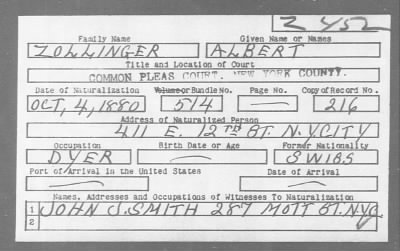 Z 452
Family Name Given Name or Names
ZOLLINGER ALBERT
Title and Location of Court
COMMON PLEAS COURT, NEW YORK COUNTY.
Date of Naturalization Volume or Bundle No. Page No. Copy of Record No.
OCT, 4, 1880 514 — 216
Address of Naturalized Person
411 E. 12TH ST. N.Y.CITY
Occupation Birth Date or Age Former Nationality
DYER — SWISS
Port of Arrival in the United States Date of Arrival
— —
Names, Addresses and Occupations of Witnesses To Naturalization
1 JOHN J. SMITH 287 MOTT ST. N.Y.C
2